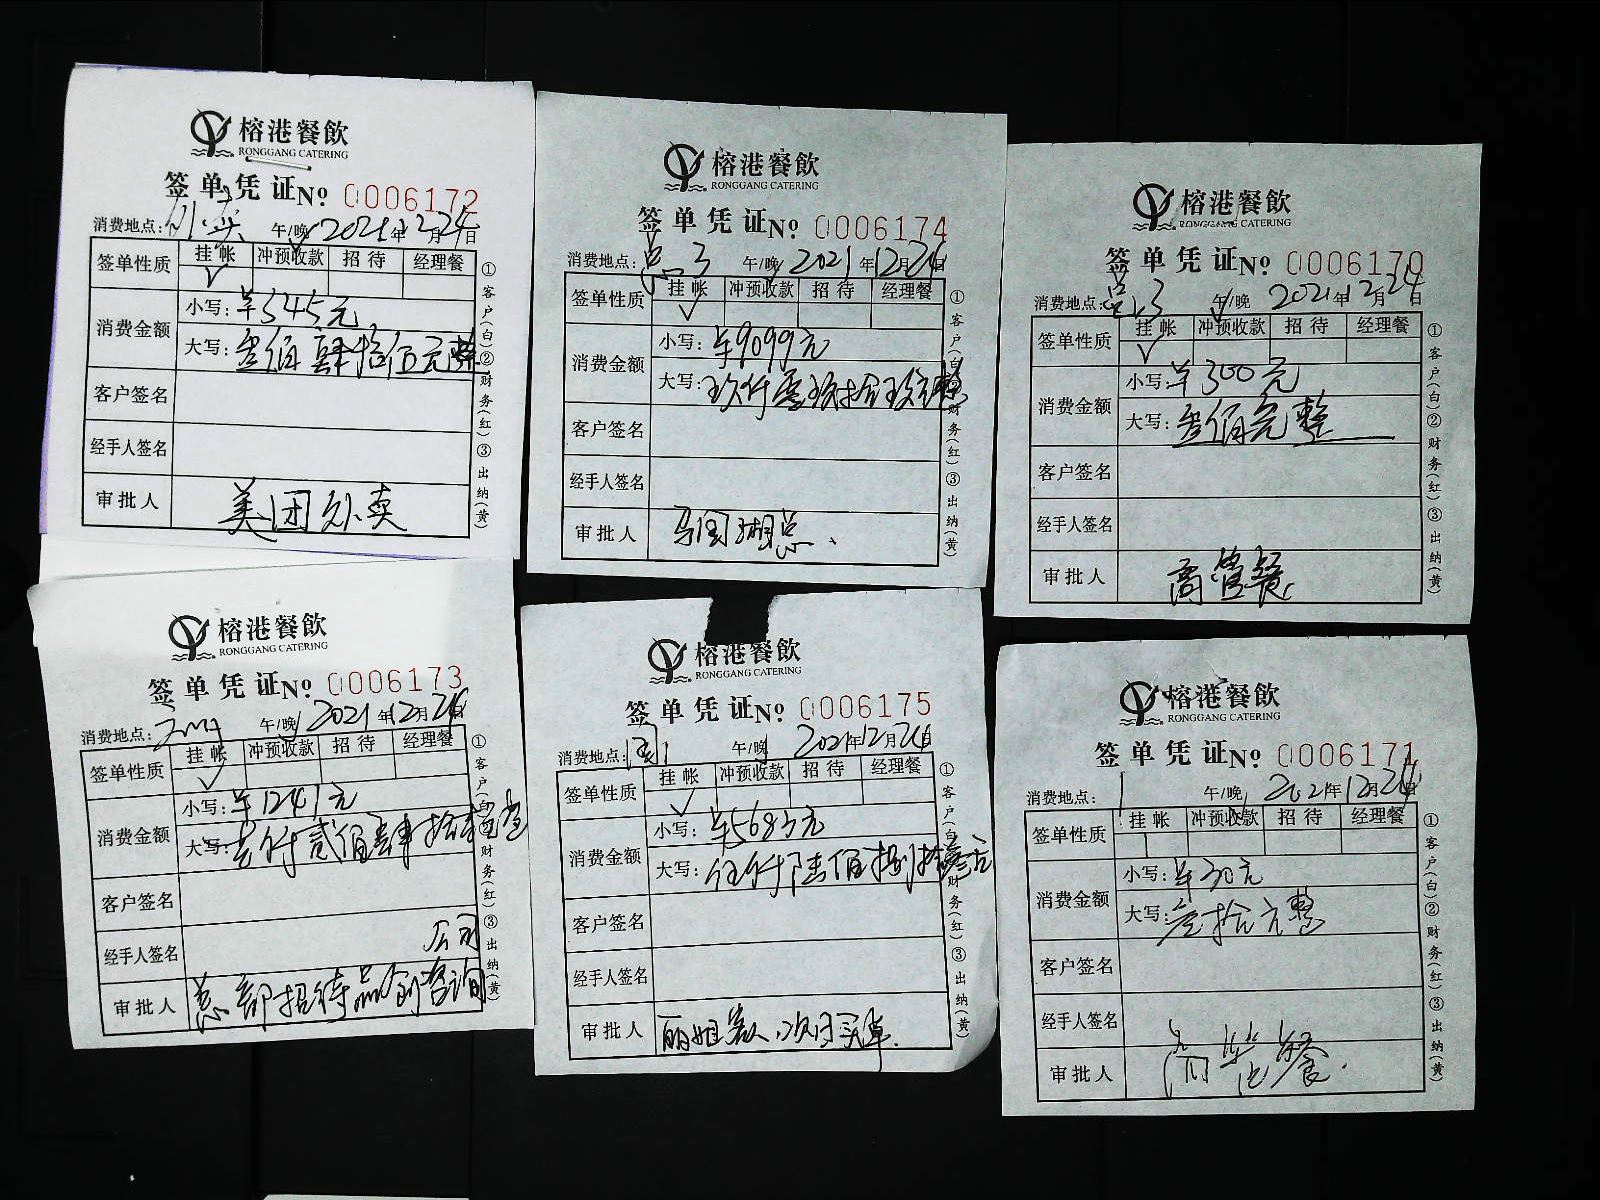 榕港餐飲
RONGGANG CATERING
签单凭证 No 0006172
消费地点: 外卖 午/晚 2021年12月24日
签单性质 挂帐 冲预收款 招待 经理餐
✓
消费金额 小写: ¥345元
大写: 叁佰肆拾伍元整
客户签名
经手人签名
审批人 美团外卖
①客户(白)②财务(红)③出纳(黄)
榕港餐飲
RONGGANG CATERING
签单凭证 No 0006174
消费地点: 总3 午/晚 2021年12月24日
签单性质 挂帐 冲预收款 招待 经理餐
✓
消费金额 小写: ¥9099元
大写: 玖仟零玖拾玖元整
客户签名
经手人签名
审批人 马国湖总、
①客户(白)②财务(红)③出纳(黄)
榕港餐飲
RONGGANG CATERING
签单凭证 No 0006170
消费地点: 总3 午/晚 2021年12月24日
签单性质 挂帐 冲预收款 招待 经理餐
✓
消费金额 小写: ¥300元
大写: 叁佰元整
客户签名
经手人签名
审批人 高管餐
①客户(白)②财务(红)③出纳(黄)
榕港餐飲
RONGGANG CATERING
签单凭证 No 0006173
消费地点: 午/晚 2021年12月24日
签单性质 挂帐 冲预收款 招待 经理餐
✓
消费金额 小写: ¥1241元
大写: 壹仟贰佰肆拾壹
客户签名
经手人签名 公司
审批人 总部招待品创咨询
①客户(白)②财务(红)③出纳(黄)
榕港餐飲
RONGGANG CATERING
签单凭证 No 0006175
消费地点: 午/晚 2021年12月24日
签单性质 挂帐 冲预收款 招待 经理餐
✓
消费金额 小写: ¥5683元
大写: 伍仟陆佰捌拾叁元
客户签名
经手人签名
审批人 丽姐客人、次日买单.
①客户(白)②财务(红)③出纳(黄)
榕港餐飲
RONGGANG CATERING
签单凭证 No 0006171
消费地点: 午/晚 2021年12月24日
签单性质 挂帐 冲预收款 招待 经理餐
消费金额 小写: ¥30元
大写: 叁拾元整
客户签名
经手人签名
审批人 高管餐.
①客户(白)②财务(红)③出纳(黄)